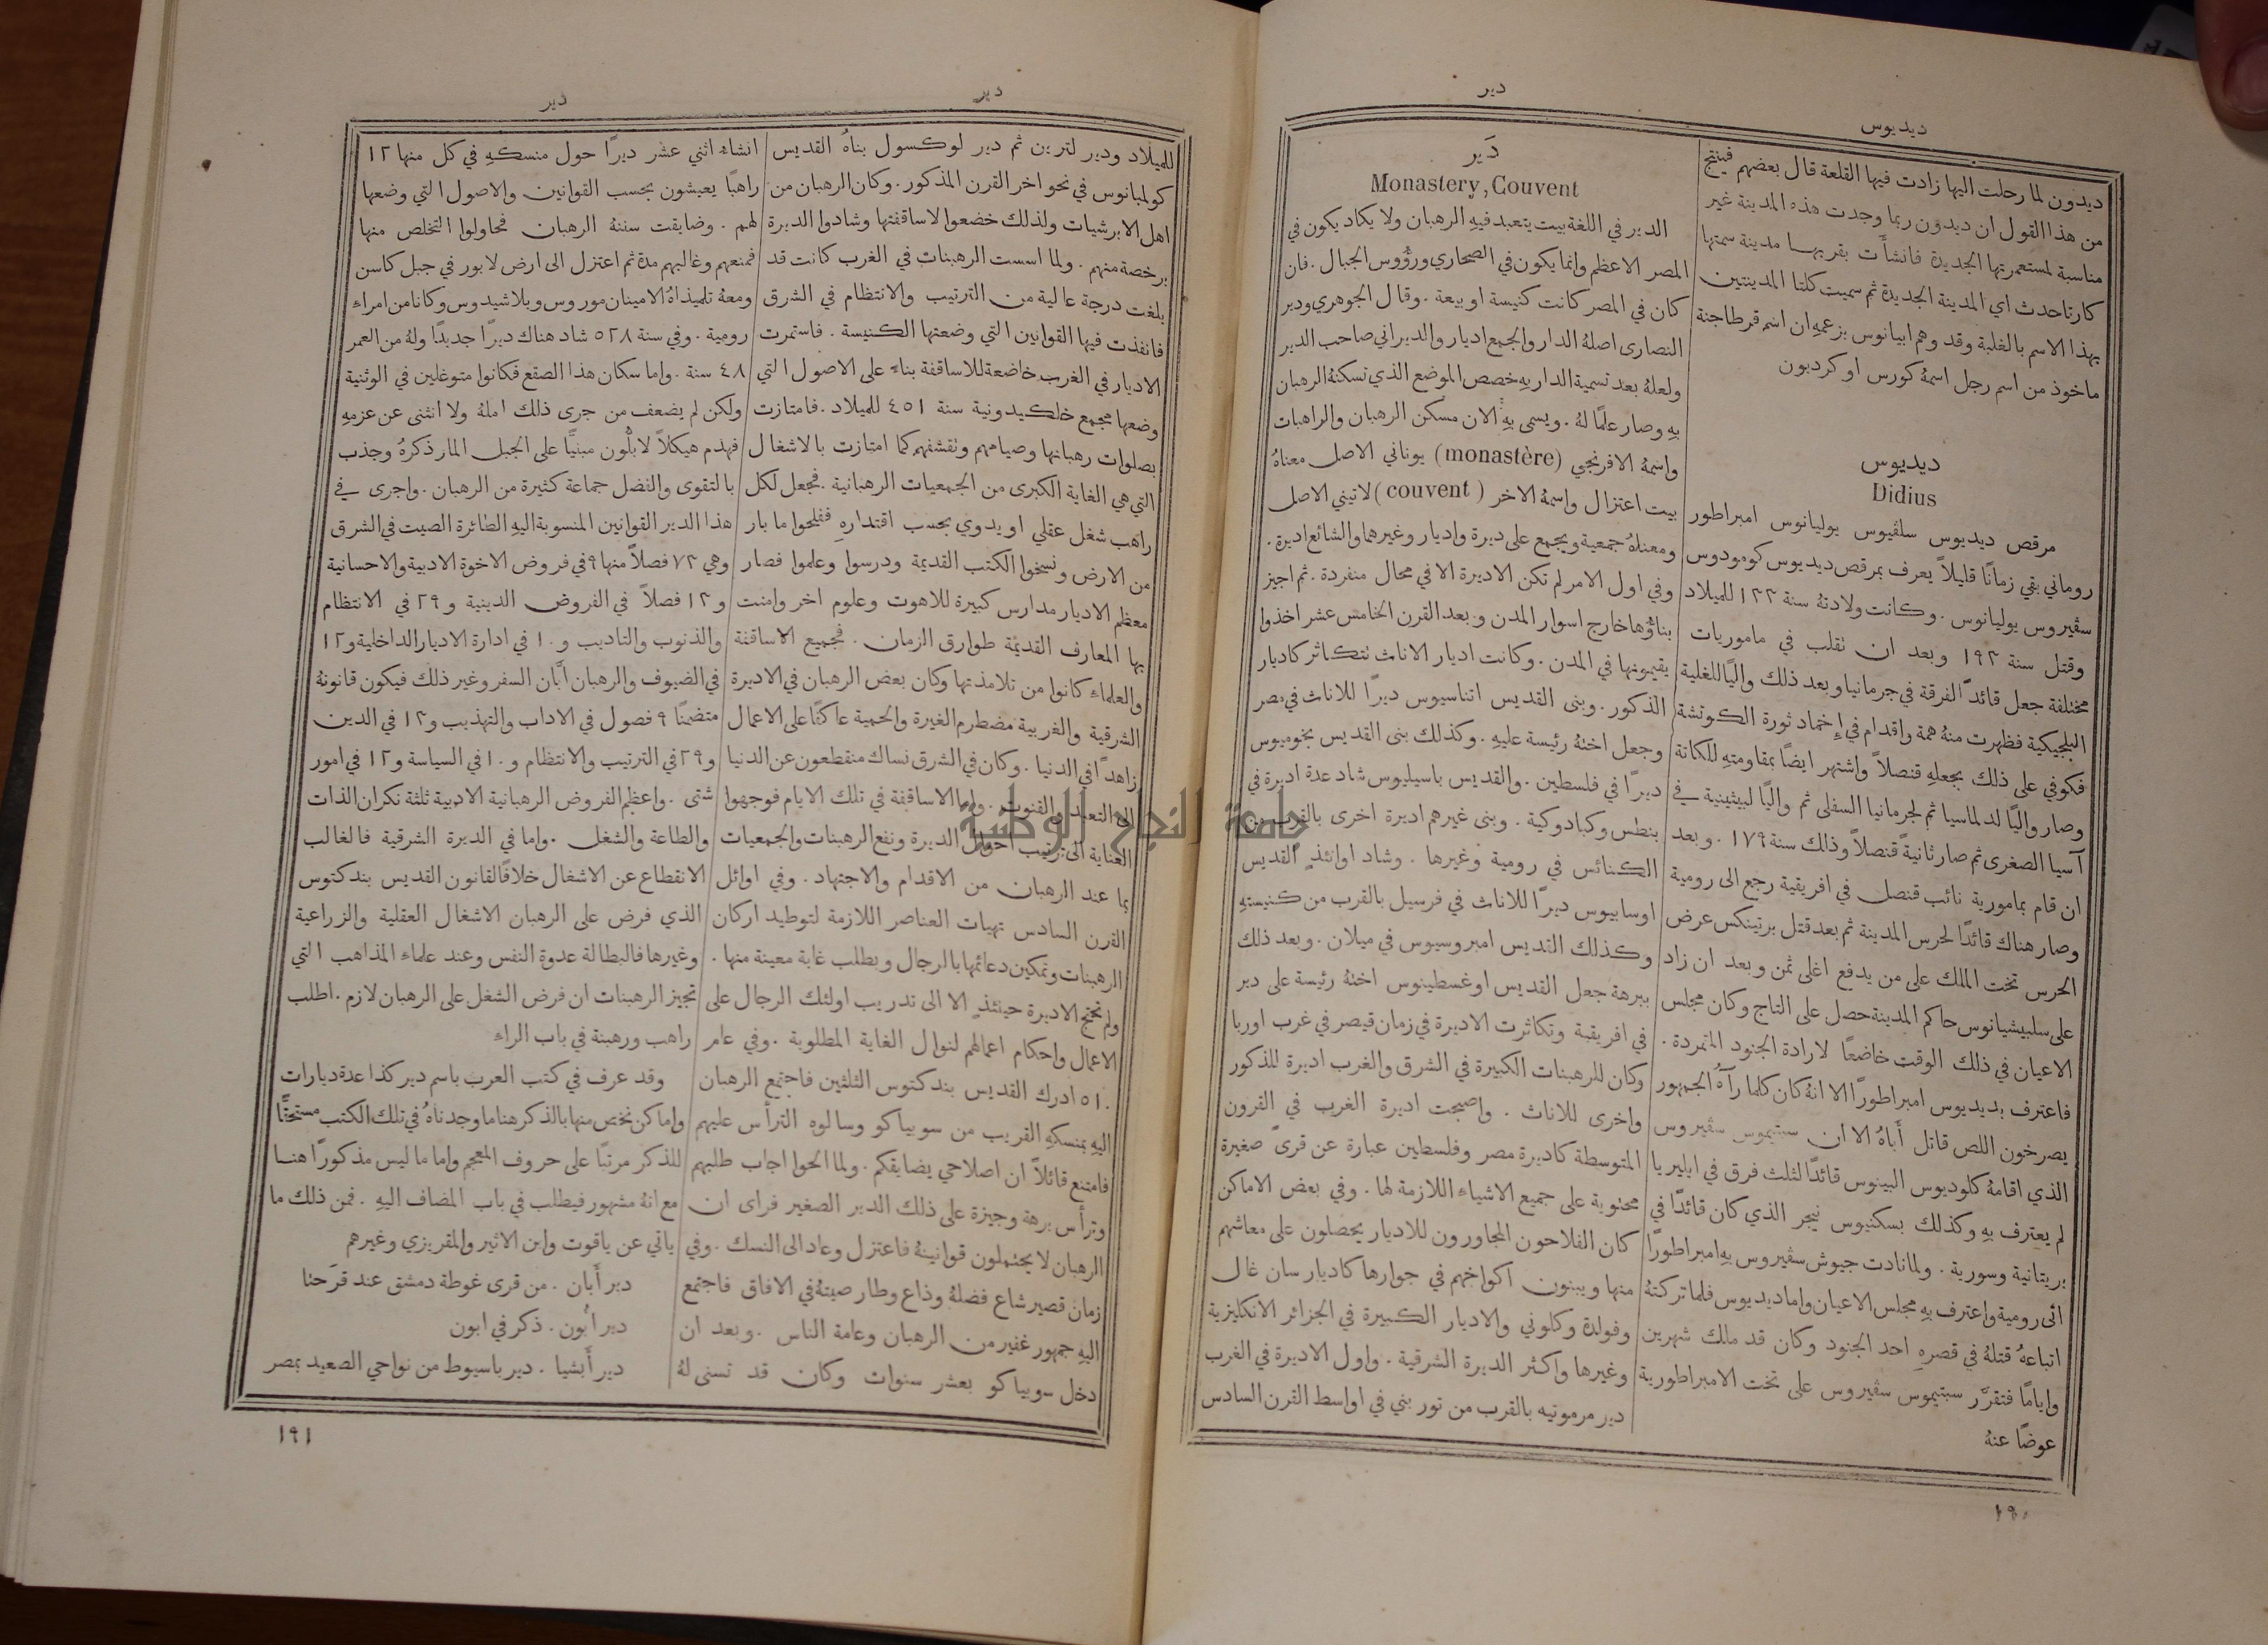 ديديوس
ديدون لما رحلت اليها زادت فيها القلعة قال بعضهم فينتج
من هذا القول ان ديدون ربما وجدت هذه المدينة غير
مناسبة لمستعمرتها الجديدة فانشأت بقربها مدينة سمتها
كارتاحدث اي المدينة الجديدة ثم سميت كلتا المدينتين
بهذا الاسم بالغلبة وقد وهم ابيانوس بزعمهِ ان اسم قرطاجنة
ماخوذ من اسم رجل اسمهُ كورس او كردبون
ديديوس
Didius
مرقص ديديوس سلڤيوس يوليانوس امبراطور
روماني بقي زمانًا قليلاً يعرف بمرقص ديديوس كومودوس
سڤيروس يوليانوس . وكانت ولادتهُ سنة ١٣٣ للميلاد
وقتل سنة ١٩٣ وبعد ان نقلب في ماموريات
مختلفة جعل قائد الفرقة في جرمانيا وبعد ذلك واليًا للغلية
البلجيكية فظهرت منهُ همة واقدام في إخماد ثورة الكوتشة
فكوفي على ذلك بجعلهِ قنصلاً واشتهر ايضًا بمقاومتهِ للكاتة
وصار واليًا لدلماسيا ثم لجرمانيا السفلى ثم واليًا لبيثينية في
آسيا الصغرى ثم صار ثانيةً قنصلاً وذلك سنة ١٧٩ . وبعد
ان قام بمامورية نائب قنصل في افريقية رجع الى رومية
وصار هناك قائدًا لحرس المدينة ثم بعد قتل برتينكس عرض
الحرس تخت الملك على من يدفع اغلى ثمن وبعد ان زاد
على سلبيشيانوس حاكم المدينة حصل على التاج وكان مجلس
الاعيان في ذلك الوقت خاضعًا لارادة الجنود المتمردة .
فاعترف بديديوس امبراطورًا الا انهُ كان كلما رآهُ الجمهور
يصرخون اللص قاتل أباهُ الا ان سبتيموس سڤيروس
الذي اقامهُ كلوديوس البينوس قائدًا لثلث فرق في ايليريا
لم يعترف بهِ وكذلك بسكنيوس نيجر الذي كان قائدًا في
بريتانية وسورية . ولما نادت جيوش سڤيروس بهِ امبراطورًا
اتى رومية واعترف بهِ مجلس الاعيان واما ديديوس فلما تركتهُ
اتباعهُ قتلهُ في قصرهِ احد الجنود وكان قد ملك شهرين
وايامًا فتقرّر سبتيموس سڤيروس على تخت الامبراطورية
عوضًا عنهُ
١٩٠
دير
دَير
Monastery, Couvent
الدير في اللغة بيت يتعبد فيهِ الرهبان ولا يكاد يكون في
المصر الاعظم وانما يكون في الصحاري ورؤوس الجبال . فان
كان في المصر كانت كنيسة او بيعة . وقال الجوهري ودير
النصارى اصلهُ الدار والجمع اديار والديراني صاحب الدير
ولعلهُ بعد تسمية الدار بهِ خصص الموضع الذي تسكنهُ الرهبان
بهِ وصار علمًا لهُ . ويسمى بهِ الان مسكن الرهبان والراهبات
واسمهُ الافرنجي (monastère) يوناني الاصل معناهُ
بيت اعتزال واسمهُ الاخر (couvent) لاتيني الاصل
ومعناهُ جمعية ويجمع على ديرة واديار وغيرهما والشائع اديرة .
وفي اول الامر لم تكن الاديرة الا في محال منفردة . ثم اجيز
بناؤها خارج اسوار المدن وبعد القرن الخامس عشر اخذوا
يقيمونها في المدن . وكانت اديار الاناث تتكاثر كاديار
الذكور . وبنى القديس اتناسيوس ديرًا للاناث في مصر
وجعل اختهُ رئيسة عليهِ . وكذلك بنى القديس بخوميوس
ديرًا في فلسطين . والقديس باسيليوس شاد عدة اديرة في
بنطس وكبادوكية . وبنى غيرهم اديرة اخرى بالقرب من
الكنائس في رومية وغيرها . وشاد اوانئذٍ القديس
اوسابيوس ديرًا للاناث في فرسيل بالقرب من كنيستهِ
وكذلك القديس امبروسيوس في ميلان . وبعد ذلك
ببرهة جعل القديس اوغسطينوس اختهُ رئيسة على دير
في افريقية وتكاثرت الاديرة في زمان قيصر في غرب اوربا
وكان للرهبنات الكبيرة في الشرق والغرب اديرة للذكور
واخرى للاناث . واصبحت اديرة الغرب في القرون
المتوسطة كاديرة مصر وفلسطين عبارة عن قرىً صغيرة
محتوية على جميع الاشياء اللازمة لها . وفي بعض الاماكن
كان الفلاحون المجاورون للاديار يحصلون على معاشهم
منها ويبنون اكواخهم في جوارها كاديار سان غال
وفولدة وكلوني والاديار الكبيرة في الجزائر الانكليزية
وغيرها واكثر الديرة الشرقية . واول الاديرة في الغرب
دير مرموتيه بالقرب من تور بني في اواسط القرن السادس
دير
للميلاد ودير لترين ثم دير لوكسول بناهُ القديس
كولمبانوس في نحو اخر القرن المذكور . وكان الرهبان من
اهل الابرشيات ولذلك خضعوا لاساقفتها وشادوا الديرة
برخصة منهم . ولما اسست الرهبنات في الغرب كانت قد
بلغت درجة عالية من الترتيب والانتظام في الشرق
فانفذت فيها القوانين التي وضعتها الكنيسة . فاستمرت
الاديار في الغرب خاضعة للاساقفة بناءً على الاصول التي
وضعها مجمع خلكيدونية سنة ٤٥١ للميلاد . فامتازت
بصلوات رهبانها وصيامهم وتقشفهم كما امتازت بالاشغال
التي هي الغاية الكبرى من الجمعيات الرهبانية . فجعل لكل
راهب شغل عقلي او يدوي بحسب اقتدارهِ ففلحوا ما بار
من الارض ونسخوا الكتب القديمة ودرسوا وعلموا فصار
معظم الاديار مدارس كبيرة للاهوت وعلوم اخر وامنت
بها المعارف القديمة طوارق الزمان . فجميع الاساقفة
والعلماء كانوا من تلامذتها وكان بعض الرهبان في الاديرة
الشرقية والغربية مضطرم الغيرة والحمية عاكفًا على الاعمال
زاهدًا في الدنيا . وكان في الشرق نساك منقطعون عن الدنيا
الى التعبد والقنوت . واما الاساقفة في تلك الايام فوجهوا
العناية الى ترتيب احوال الديرة ونفع الرهبنات والجمعيات
بما عند الرهبان من الاقدام والاجتهاد . وفي اوائل
القرن السادس تهيات العناصر اللازمة لتوطيد اركان
الرهبنات وتمكين دعائمها بالرجال وبطلب غاية معينة منها .
ولم تحتج الاديرة حينئذٍ الا الى تدريب اولئك الرجال على
الاعمال واحكام اعمالهم لنوال الغاية المطلوبة . وفي عام
٥١٠ ادرك القديس بندكتوس الثلثين فاجتمع الرهبان
اليهِ بمنسكهِ القريب من سوبياكو وسالوه الترأس عليهم
فامتنع قائلاً ان اصلاحي يضايقكم . ولما الحوا اجاب طلبهم
وترأس برهة وجيزة على ذلك الدير الصغير فراى ان
الرهبان لا يحتملون قوانينهُ فاعتزل وعاد الى النسك . وفي
زمان قصير شاع فضلهُ وذاع وطار صيتهُ في الافاق فاجتمع
اليهِ جمهور غفير من الرهبان وعامة الناس . وبعد ان
دخل سوبياكو بعشر سنوات وكان قد تسنى لهُ
دير
انشاء اثني عشر ديرًا حول منسكهِ في كل منها ١٢
راهبًا يعيشون بحسب القوانين والاصول التي وضعها
لهم . وضايقت سننهُ الرهبان فحاولوا التخلص منها
فمنعهم وغالبهم مدة ثم اعتزل الى ارض لابور في جبل كاسن
ومعهُ تلميذاهُ الامينان موروس وبلاشيدوس وكانا من امراء
رومية . وفي سنة ٥٢٨ شاد هناك ديرًا جديدًا ولهُ من العمر
٤٨ سنة . واما سكان هذا الصقع فكانوا متوغلين في الوثنية
ولكن لم يضعف من جرى ذلك املهُ ولا انثنى عن عزمهِ
فهدم هيكلاً لابلُّون مبنيًّا على الجبل المار ذكرهُ وجذب
بالتقوى والفضل جماعة كثيرة من الرهبان . واجرى في
هذا الدير القوانين المنسوبة اليهِ الطائرة الصيت في الشرق
وهي ٧٣ فصلاً منها ٩ في فروض الاخوة الادبية والاحسانية
و١٣ فصلاً في الفروض الدينية و٢٩ في الانتظام
والذنوب والتاديب و١٠ في ادارة الاديار الداخلية و١٢
في الضيوف والرهبان أبَّان السفر وغير ذلك فيكون قانونهُ
متضمنًا ٩ فصول في الاداب والتهذيب و١٣ في الدين
و٢٩ في الترتيب والانتظام و١٠ في السياسة و١٢ في امور
شتى . واعظم الفروض الرهبانية الادبية ثلثة نكران الذات
والطاعة والشغل . واما في الديرة الشرقية فالغالب
الانقطاع عن الاشغال خلافًا لقانون القديس بندكتوس
الذي فرض على الرهبان الاشغال العقلية والزراعية
وغيرها فالبطالة عدوة النفس وعند علماء المذاهب التي
تجيز الرهبنات ان فرض الشغل على الرهبان لازم . اطلب
راهب ورهبنة في باب الراء
وقد عرف في كتب العرب باسم دير كذا عدة ديارات
واماكن نخص منها بالذكر هنا ما وجدناهُ في تلك الكتب مستحقًّا
للذكر مرتبًا على حروف المعجم واما ما ليس مذكورًا هنا
مع انهُ مشهور فيطلب في باب المضاف اليهِ . فمن ذلك ما
ياتي عن ياقوت وابن الاثير والمقريزي وغيرهم
دير أَبان . من قرى غوطة دمشق عند قَرَحتا
دير أَبون . ذكر في ابون
دير أَبشيا . دير باسيوط من نواحي الصعيد بمصر
١٩١
جامعة النجاح الوطنية